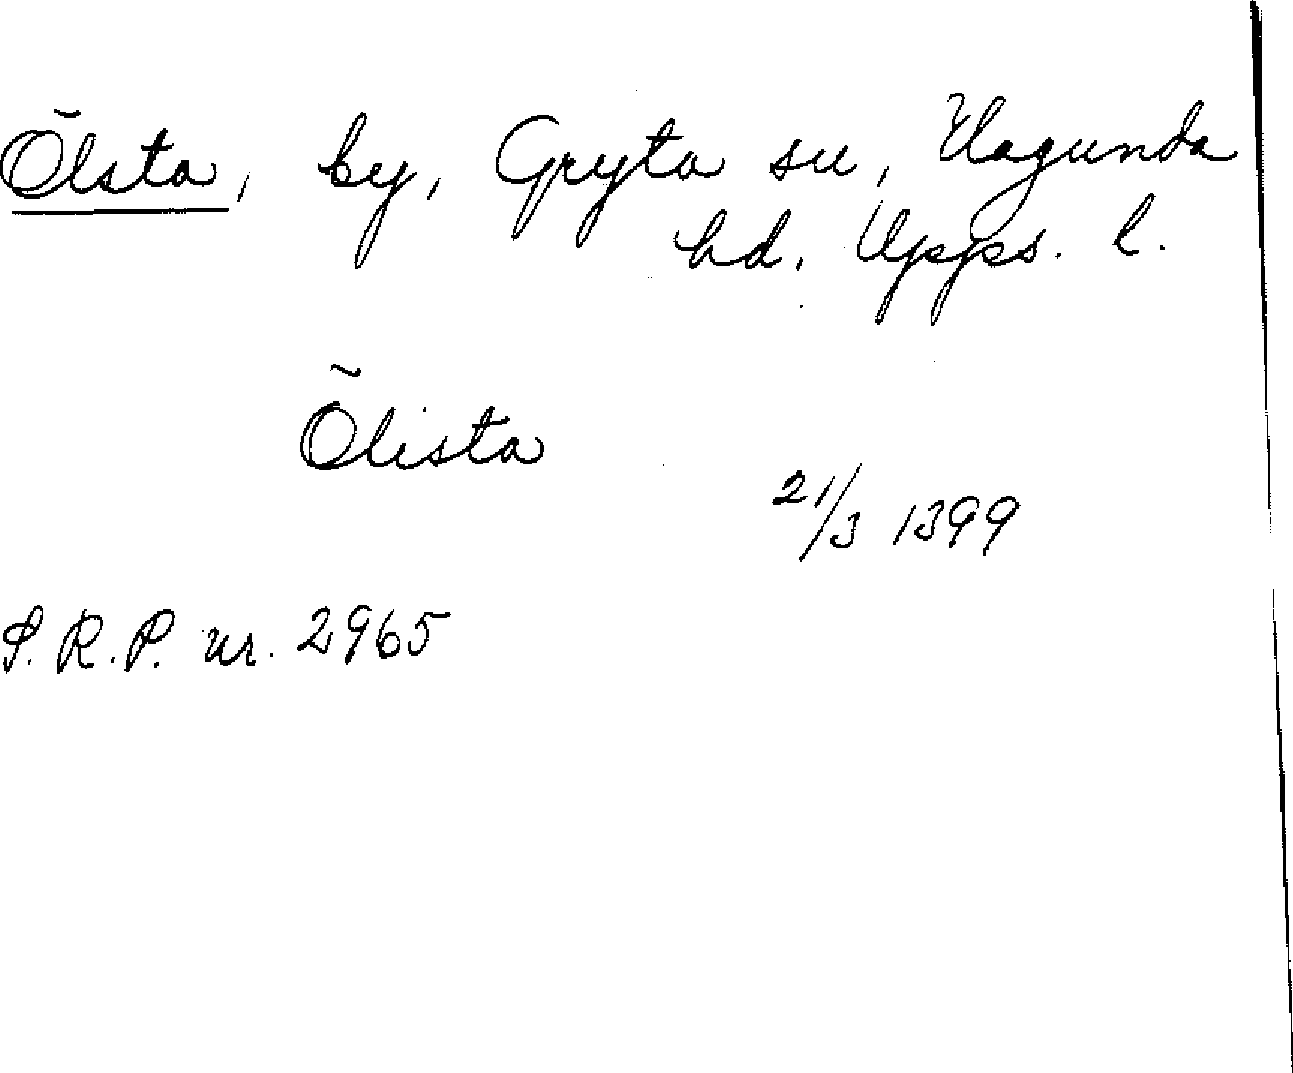 Ölsta, by, Gryta sn, Hagunda
hd. Upps. l.
Ölista
21/3 1399
S.R.P. nr. 2965